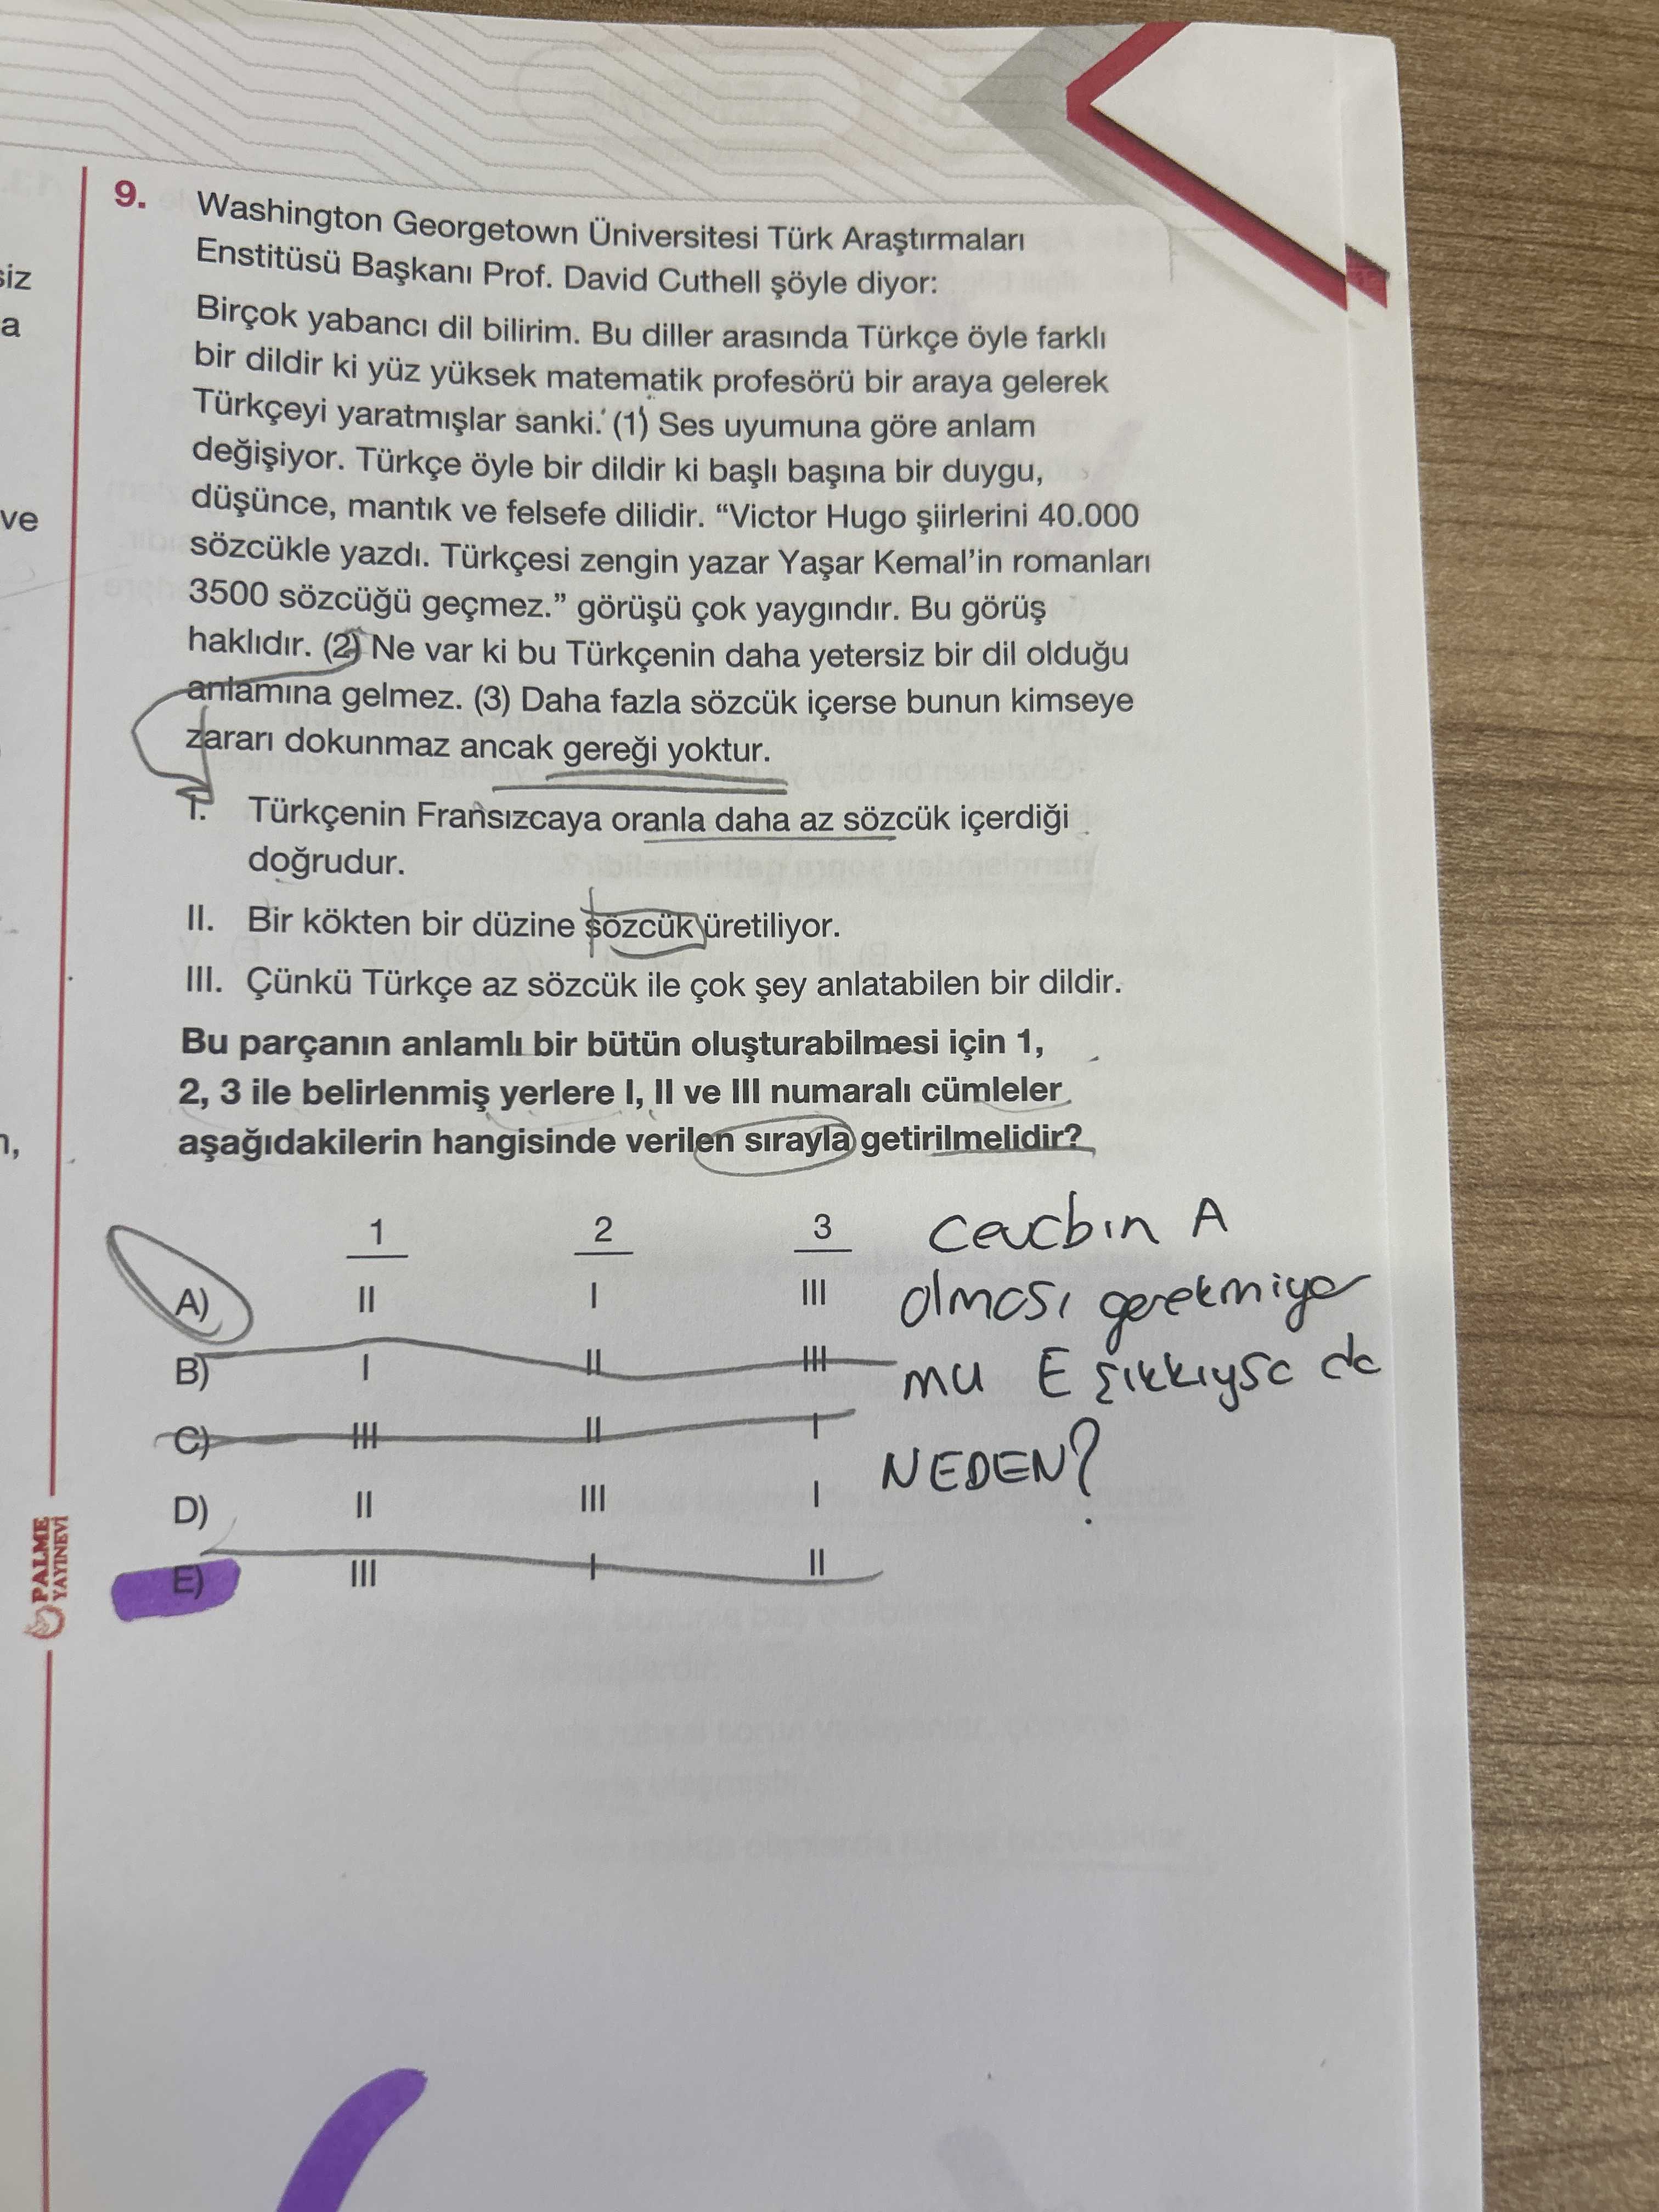 siz
a
ve
n,
9. Washington Georgetown Üniversitesi Türk Araştırmaları
Enstitüsü Başkanı Prof. David Cuthell şöyle diyor:
Birçok yabancı dil bilirim. Bu diller arasında Türkçe öyle farklı
bir dildir ki yüz yüksek matematik profesörü bir araya gelerek
Türkçeyi yaratmışlar sanki. (1) Ses uyumuna göre anlam
değişiyor. Türkçe öyle bir dildir ki başlı başına bir duygu,
düşünce, mantık ve felsefe dilidir. “Victor Hugo şiirlerini 40.000
sözcükle yazdı. Türkçesi zengin yazar Yaşar Kemal’in romanları
3500 sözcüğü geçmez.” görüşü çok yaygındır. Bu görüş
haklıdır. (2) Ne var ki bu Türkçenin daha yetersiz bir dil olduğu
anlamına gelmez. (3) Daha fazla sözcük içerse bunun kimseye
zararı dokunmaz ancak gereği yoktur.
I. Türkçenin Fransızcaya oranla daha az sözcük içerdiği
doğrudur.
II. Bir kökten bir düzine sözcük üretiliyor.
III. Çünkü Türkçe az sözcük ile çok şey anlatabilen bir dildir.
Bu parçanın anlamlı bir bütün oluşturabilmesi için 1,
2, 3 ile belirlenmiş yerlere I, II ve III numaralı cümleler
aşağıdakilerin hangisinde verilen sırayla getirilmelidir?
1 2 3
A) II I III
B) I II III
C) III II I
D) II III I
E) III I II
cevcbın A
olması gerekmiyor
mu E şıkkıysa da
NEDEN?
PALME
YAYINEVİ